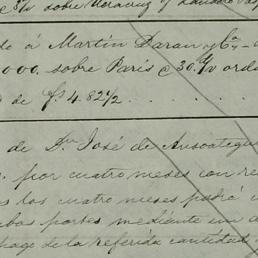 sobre Veracruz y
do á Martin Daran y Cª
000. sobre Paris @ 30 d/v orden
de fs 4.82½
de Dn José de Ansoategui
por cuatro meses con re
los cuatro meses podrá
ambas partes mediante un a
pago de la referida cantidad